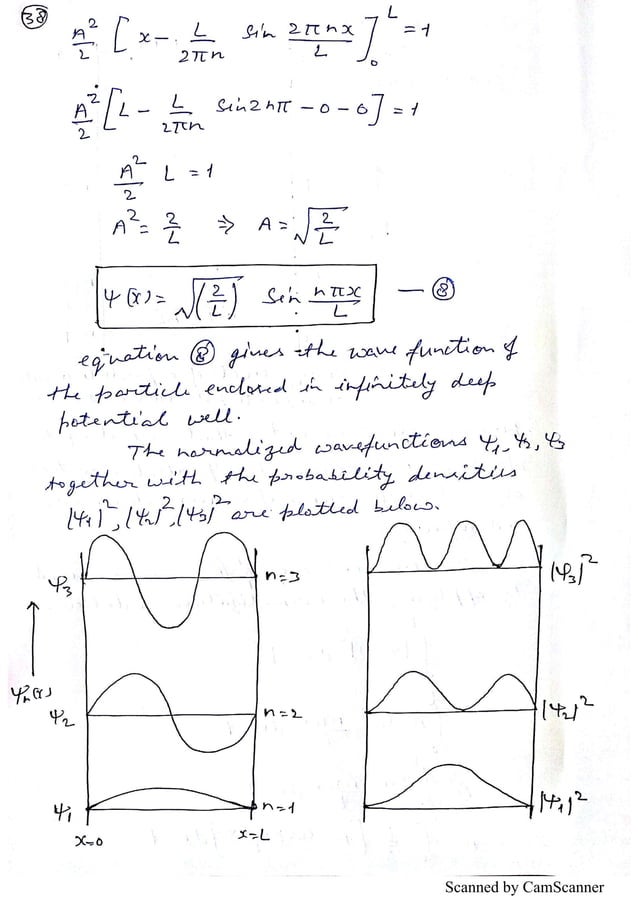 38
A²/2 [x - L/2πn sin 2πnx/L]₀ᴸ = 1
A²/2 [L - L/2πn sin2nπ - 0 - 0] = 1
A²/2 L = 1
A² = 2/L ⇒ A = √(2/L)
ψ(x) = √(2/L) sin nπx/L — ⑧
equation ⑧ gives the wave function of
the particle enclosed in infinitely deep
potential well.
The normalized wavefunctions ψ₁, ψ₂, ψ₃
together with the probability densities
|ψ₁|², |ψ₂|², |ψ₃|² are plotted below.
ψ₃ n=3 |ψ₃|²
ψₙ(x)
ψ₂ n=2 |ψ₂|²
ψ₁ n=1 |ψ₁|²
x=0 x=L
Scanned by CamScanner